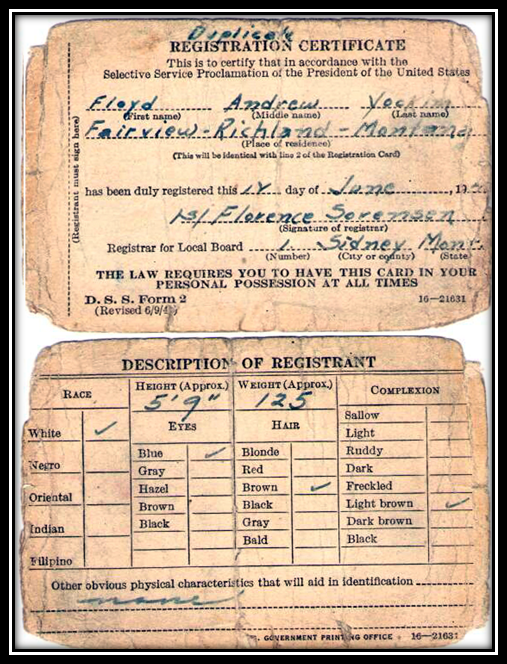 Duplicate
REGISTRATION CERTIFICATE
This is to certify that in accordance with the
Selective Service Proclamation of the President of the United States
Floyd Andrew
(First name) (Middle name) (Last name)
Fairview - Richland - Montana
(Place of residence)
(This will be identical with line 2 of the Registration Card)
(Registrant must sign here)
has been duly registered this day of June, 19
/s/ Florence Sorensen
(Signature of registrar)
Registrar for Local Board 1 Sidney Mont.
(Number) (City or county) (State
THE LAW REQUIRES YOU TO HAVE THIS CARD IN YOUR
PERSONAL POSSESSION AT ALL TIMES
D. S. S. Form 2
(Revised 6/9/4 16—21631
DESCRIPTION OF REGISTRANT
RACE HEIGHT (Approx.) WEIGHT (Approx.) COMPLEXION
5' 9" 125
EYES HAIR
Sallow
White ✓ Light
Blue ✓ Blonde Ruddy
Negro Gray Red Dark
Hazel Brown ✓ Freckled
Oriental Brown Black Light brown ✓
Black Gray Dark brown
Indian Bald Black
Filipino
Other obvious physical characteristics that will aid in identification
none
. GOVERNMENT PRINTING OFFICE 16—21631